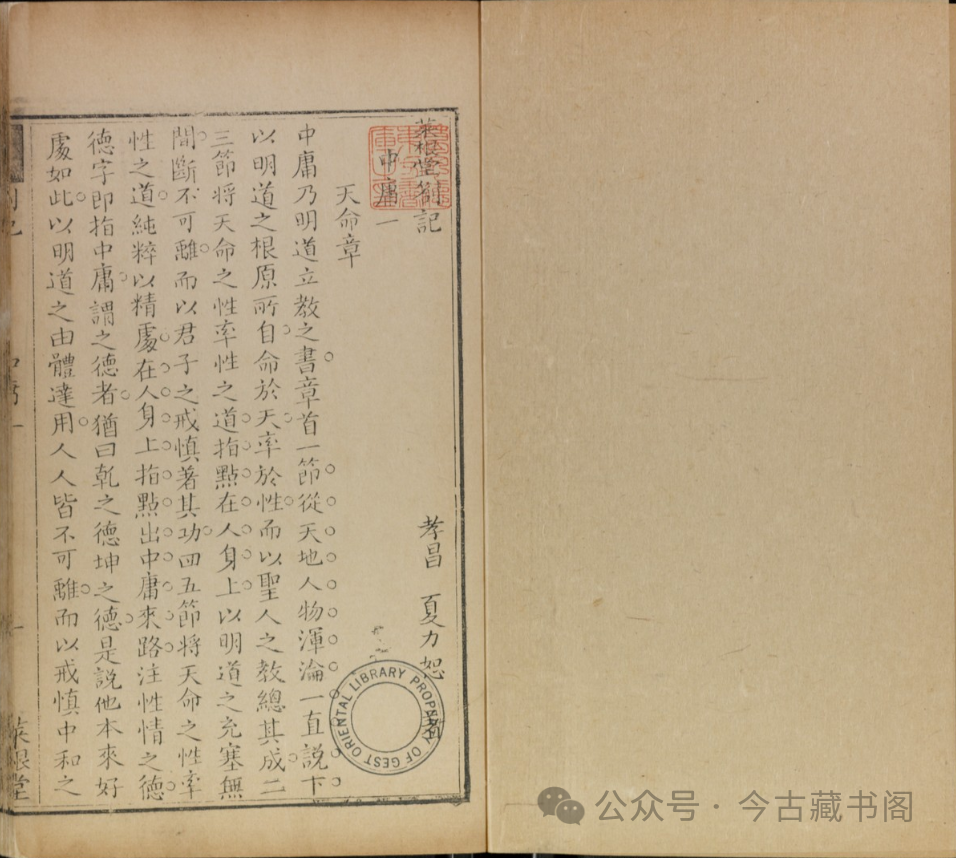 菜根堂劄記
孝昌 夏力恕 著
中庸一
天命章
中庸乃明道立教之書章首一節從天地人物渾淪一直説下
以明道之根原所自命於天率於性而以聖人之教總其成二
三節將天命之性率性之道指點在人身上以明道之充塞無
間斷不可離而以君子之戒慎著其功四五節將天命之性率
性之道純粹以精處在人身上指點出中庸來路注性情之德
德字即指中庸謂之德者猶曰乾之德坤之德是説他本來好
處如此以明道之由體達用人人皆不可離而以戒慎中和之
菜根堂
ORIENTAL LIBRARY PROPERTY OF GEST
公众号 · 今古藏书阁